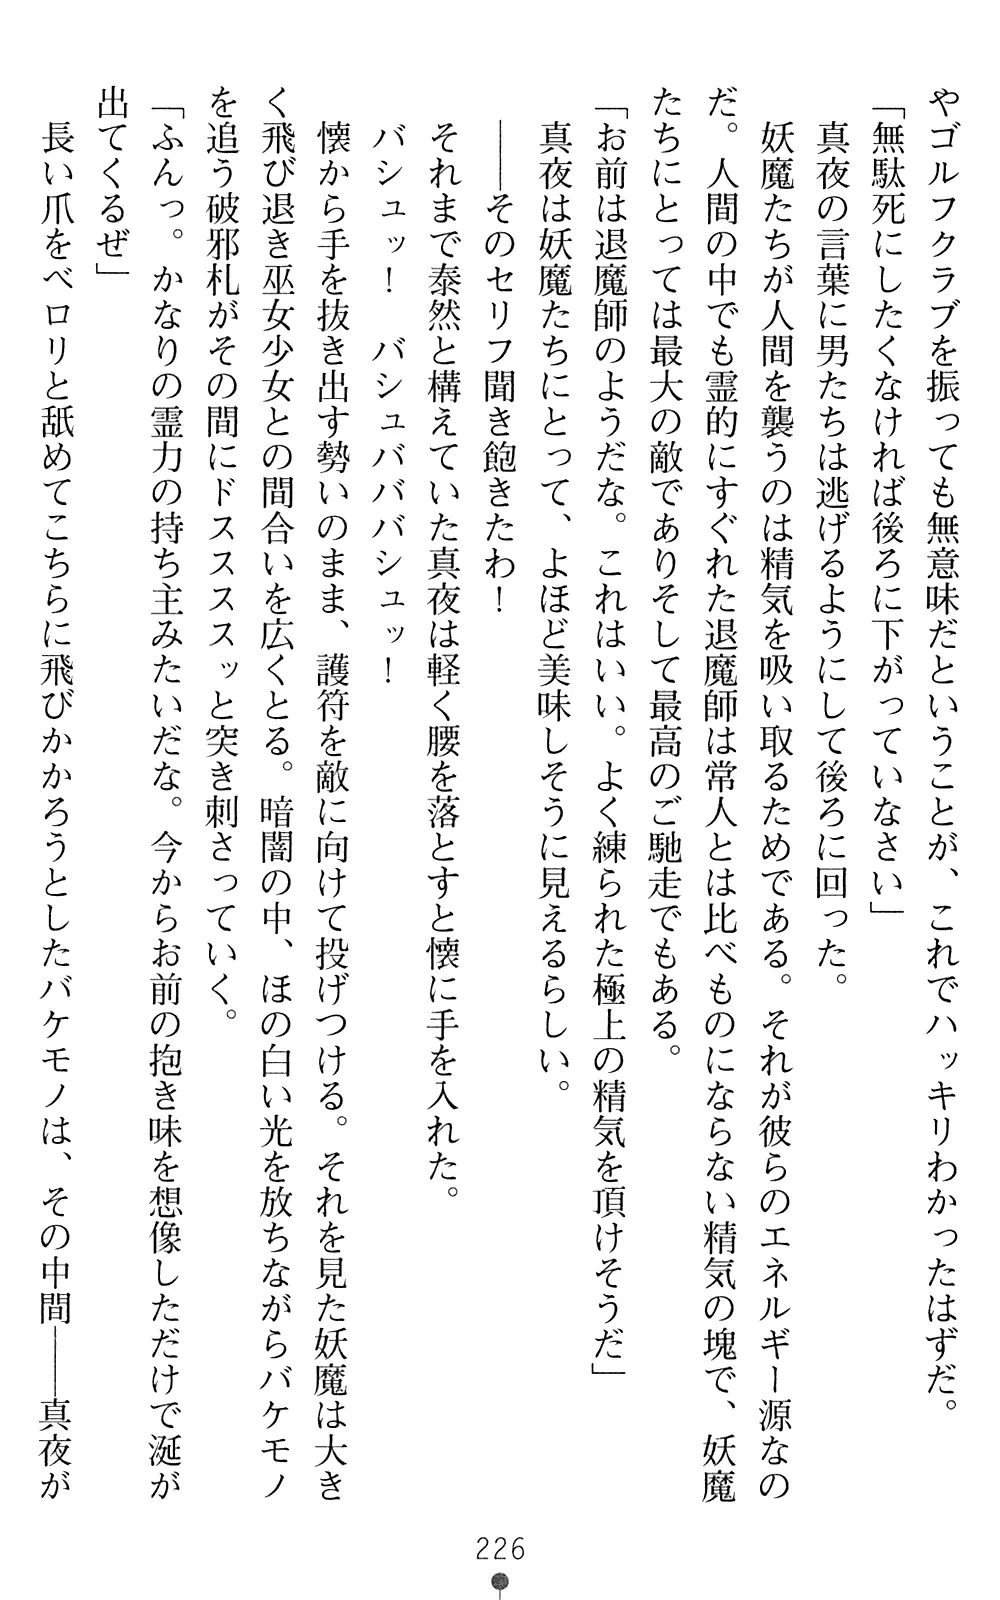 やゴルフクラブを振っても無意味だということが、これでハッキリわかったはずだ。
「無駄死にしたくなければ後ろに下がっていなさい」
　真夜の言葉に男たちは逃げるようにして後ろに回った。
　妖魔たちが人間を襲うのは精気を吸い取るためである。それが彼らのエネルギー源なの
だ。人間の中でも霊的にすぐれた退魔師は常人とは比べものにならない精気の塊で、妖魔
たちにとっては最大の敵でありそして最高のご馳走でもある。
「お前は退魔師のようだな。これはいい。よく練られた極上の精気を頂けそうだ」
　真夜は妖魔たちにとって、よほど美味しそうに見えるらしい。
　――そのセリフ聞き飽きたわ！
　それまで泰然と構えていた真夜は軽く腰を落とすと懐に手を入れた。
　バシュッ！　バシュババババシュッ！
　懐から手を抜き出す勢いのまま、護符を敵に向けて投げつける。それを見た妖魔は大き
く飛び退き巫女少女との間合いを広くとる。暗闇の中、ほの白い光を放ちながらバケモノ
を追う破邪札がその間にドスススッと突き刺さっていく。
「ふんっ。かなりの霊力の持ち主みたいだな。今からお前の抱き味を想像しただけで涎が
出てくるぜ」
　長い爪をベロリと舐めてこちらに飛びかかろうとしたバケモノは、その中間――真夜が
226